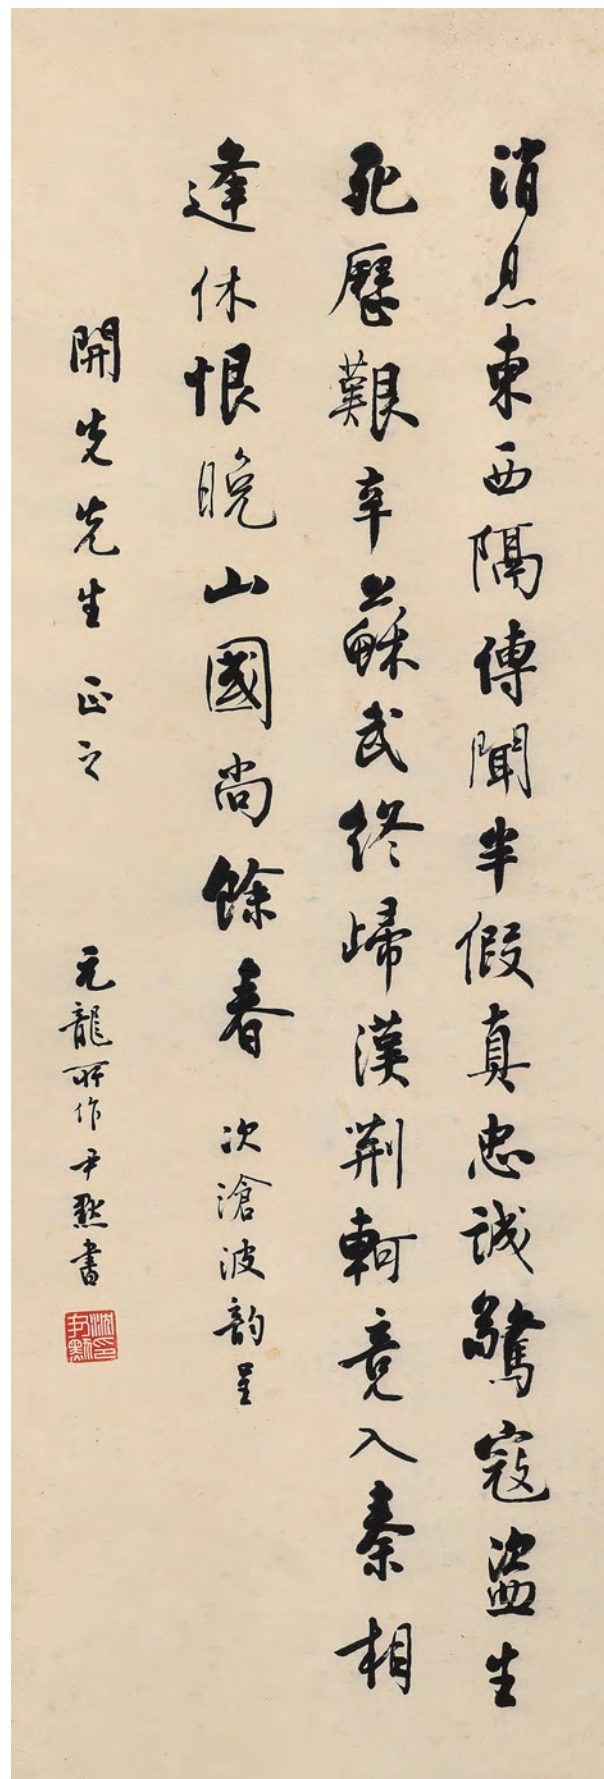 消息東西隔傳聞半假真忠誠驚寇盜生
死歷艱辛蘇武終歸漢荆軻竟入秦相
逢休恨晚山國尚餘春 次滄波韵呈
開先先生正之 元龍所作尹默書
沈尹默印